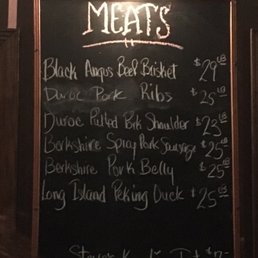 MEATS
Black Angus Beef Brisket $29 LB
Duroc Pork Ribs $25 LB
Duroc Pulled Pork Shoulder $23 LB
Berkshire Spray Pork Sausage $25 LB
Berkshire Pork Belly $25 LB
Long Island Peking Duck $25 LB